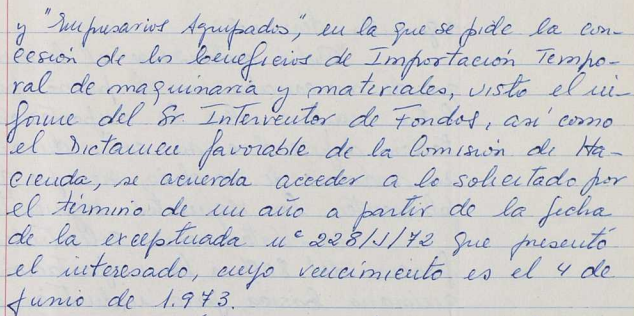 y "Empresarios Agrupados", en la que se pide la con-
cesión de los beneficios de Importación Tempo-
ral de maquinaria y materiales, visto el in-
forme del Sr. Interventor de Fondos, así como
el Dictamen favorable de la Comisión de Ha-
cienda, se acuerda acceder a lo solicitado por
el término de un año a partir de la fecha
de la exceptuada nº 228/J/72 que presentó
el interesado, cuyo vencimiento es el 4 de
Junio de 1.973.